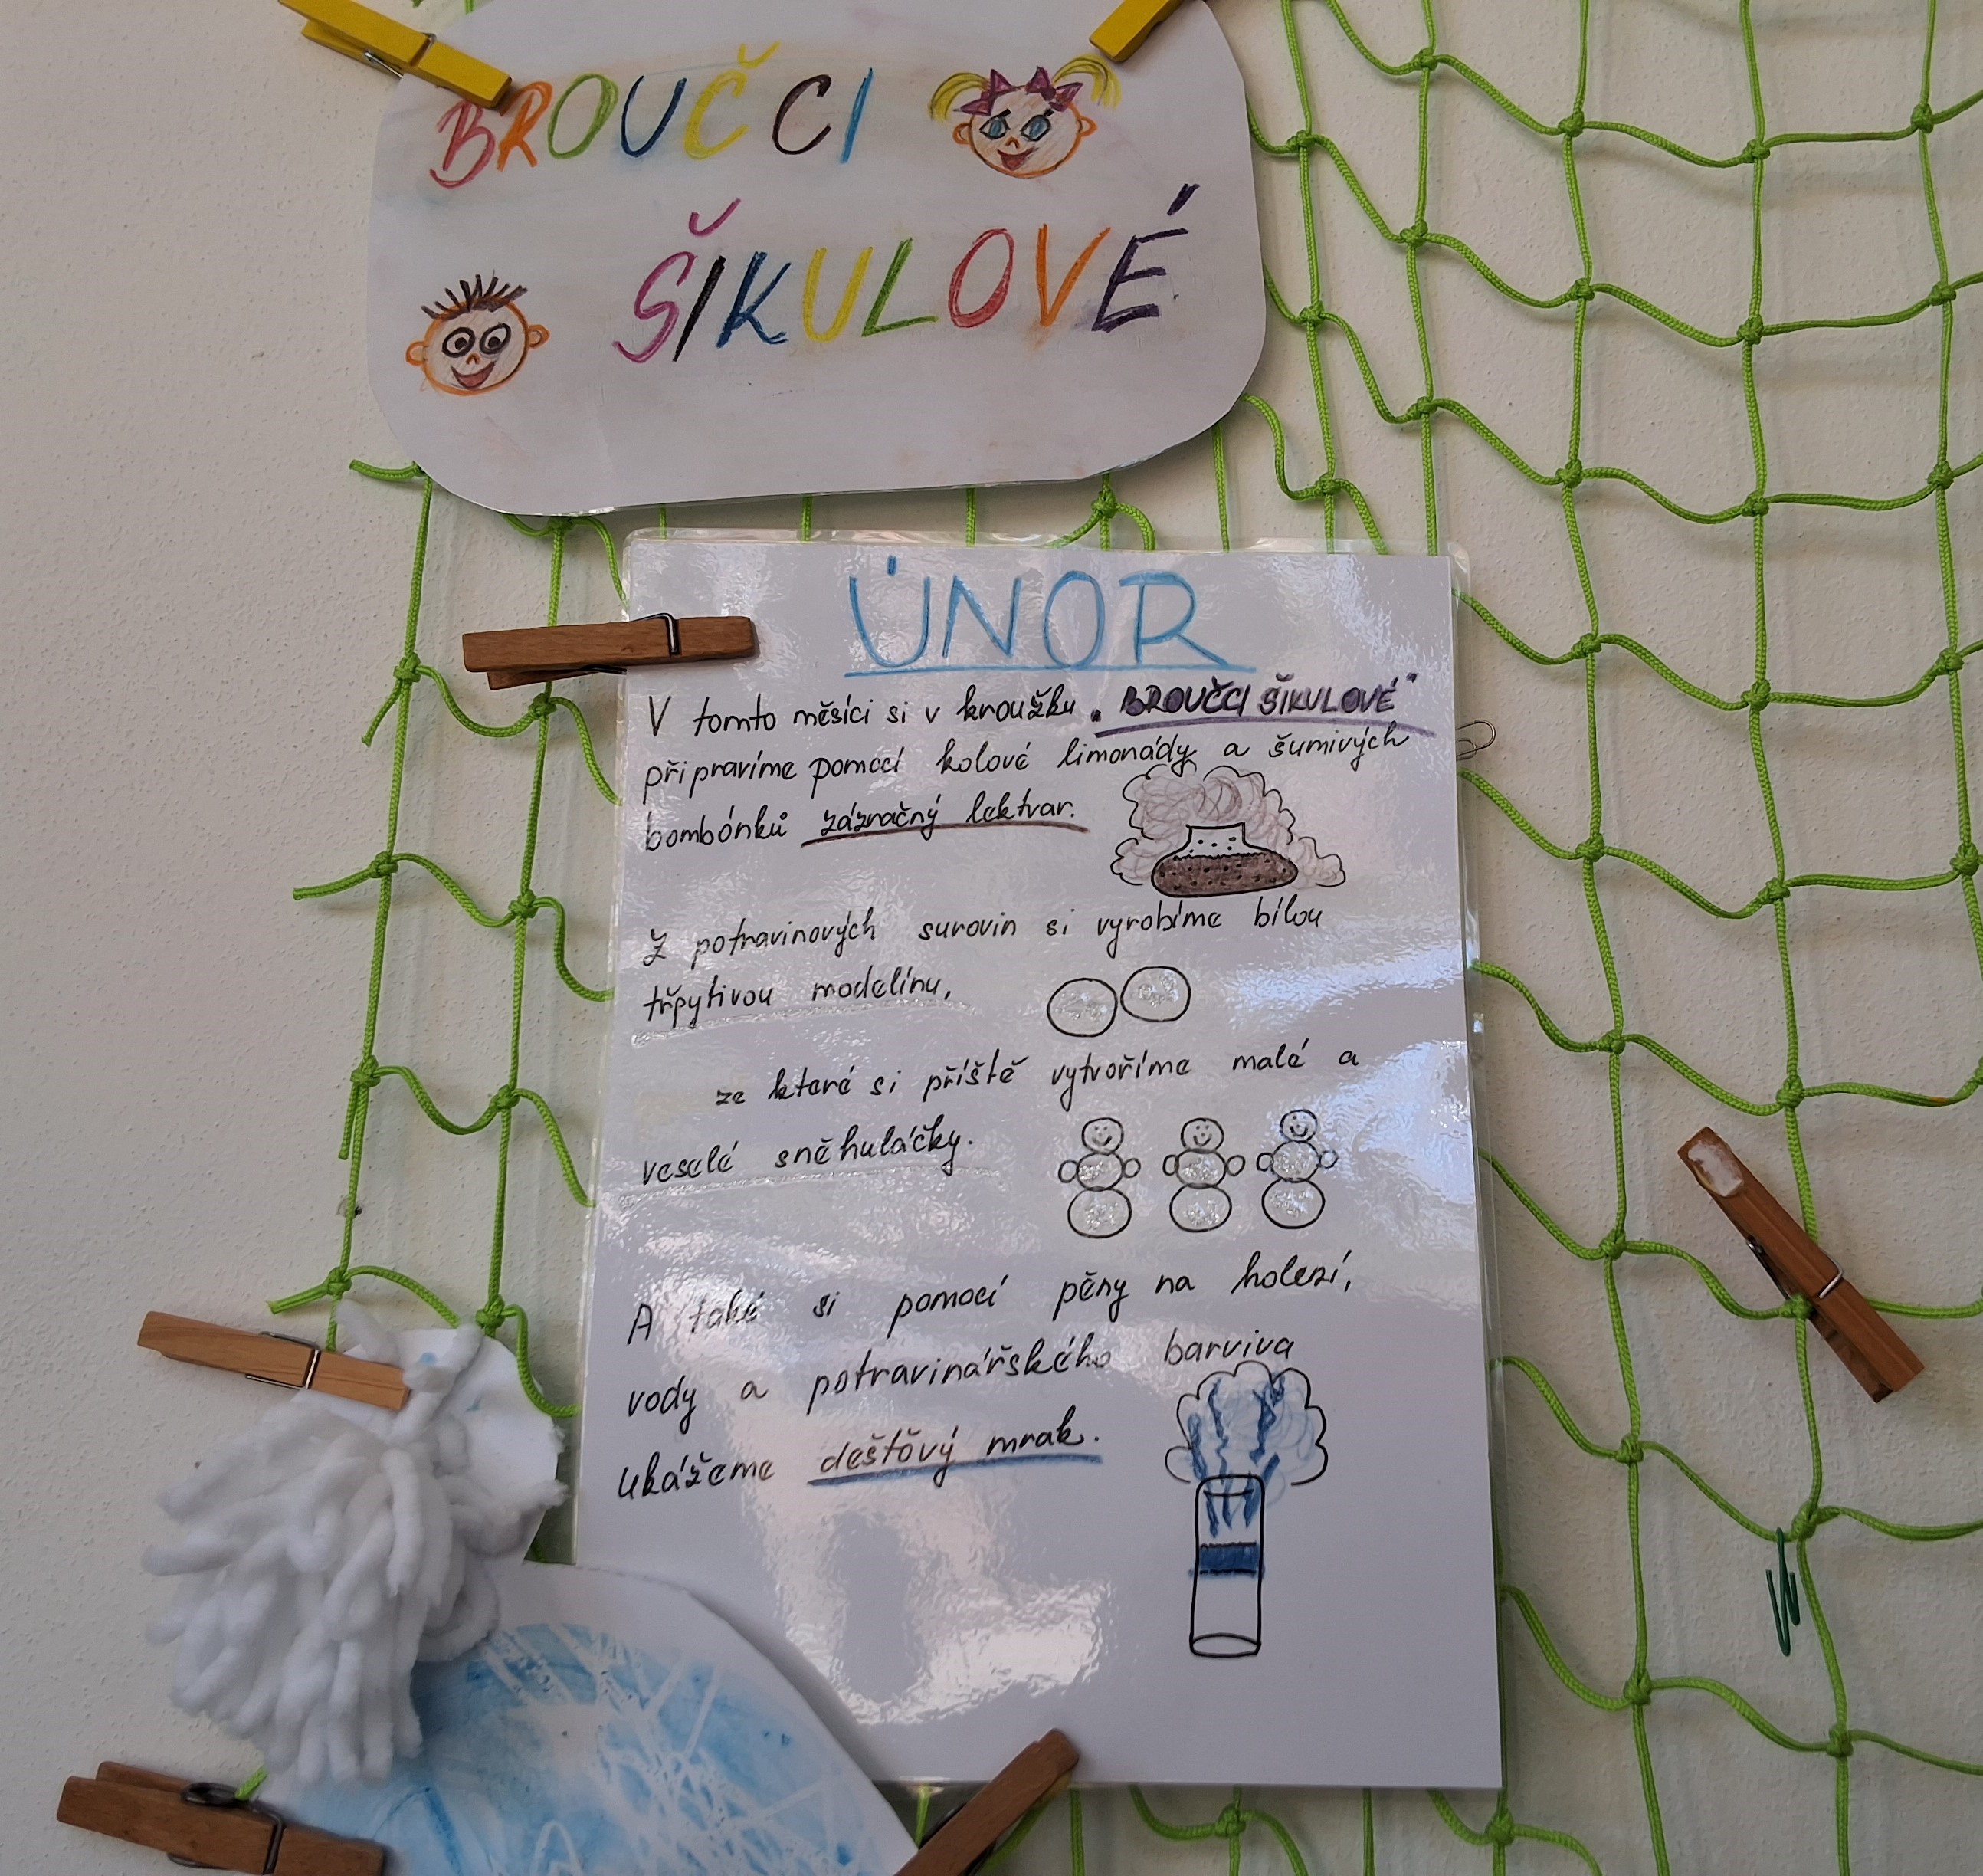 BROUČCI
ŠIKULOVÉ
ÚNOR
V tomto měsíci si v kroužku „BROUČCI ŠIKULOVÉ"
připravíme pomocí kolové limonády a šumivých
bombónků zázračný lektvar.
Z potravinových surovin si vyrobíme bílou
třpytivou modelínu,
ze které si příště vytvoříme malé a
veselé sněhuláčky.
A také si pomocí pěny na holení,
vody a potravinářského barviva
ukážeme dešťový mrak.